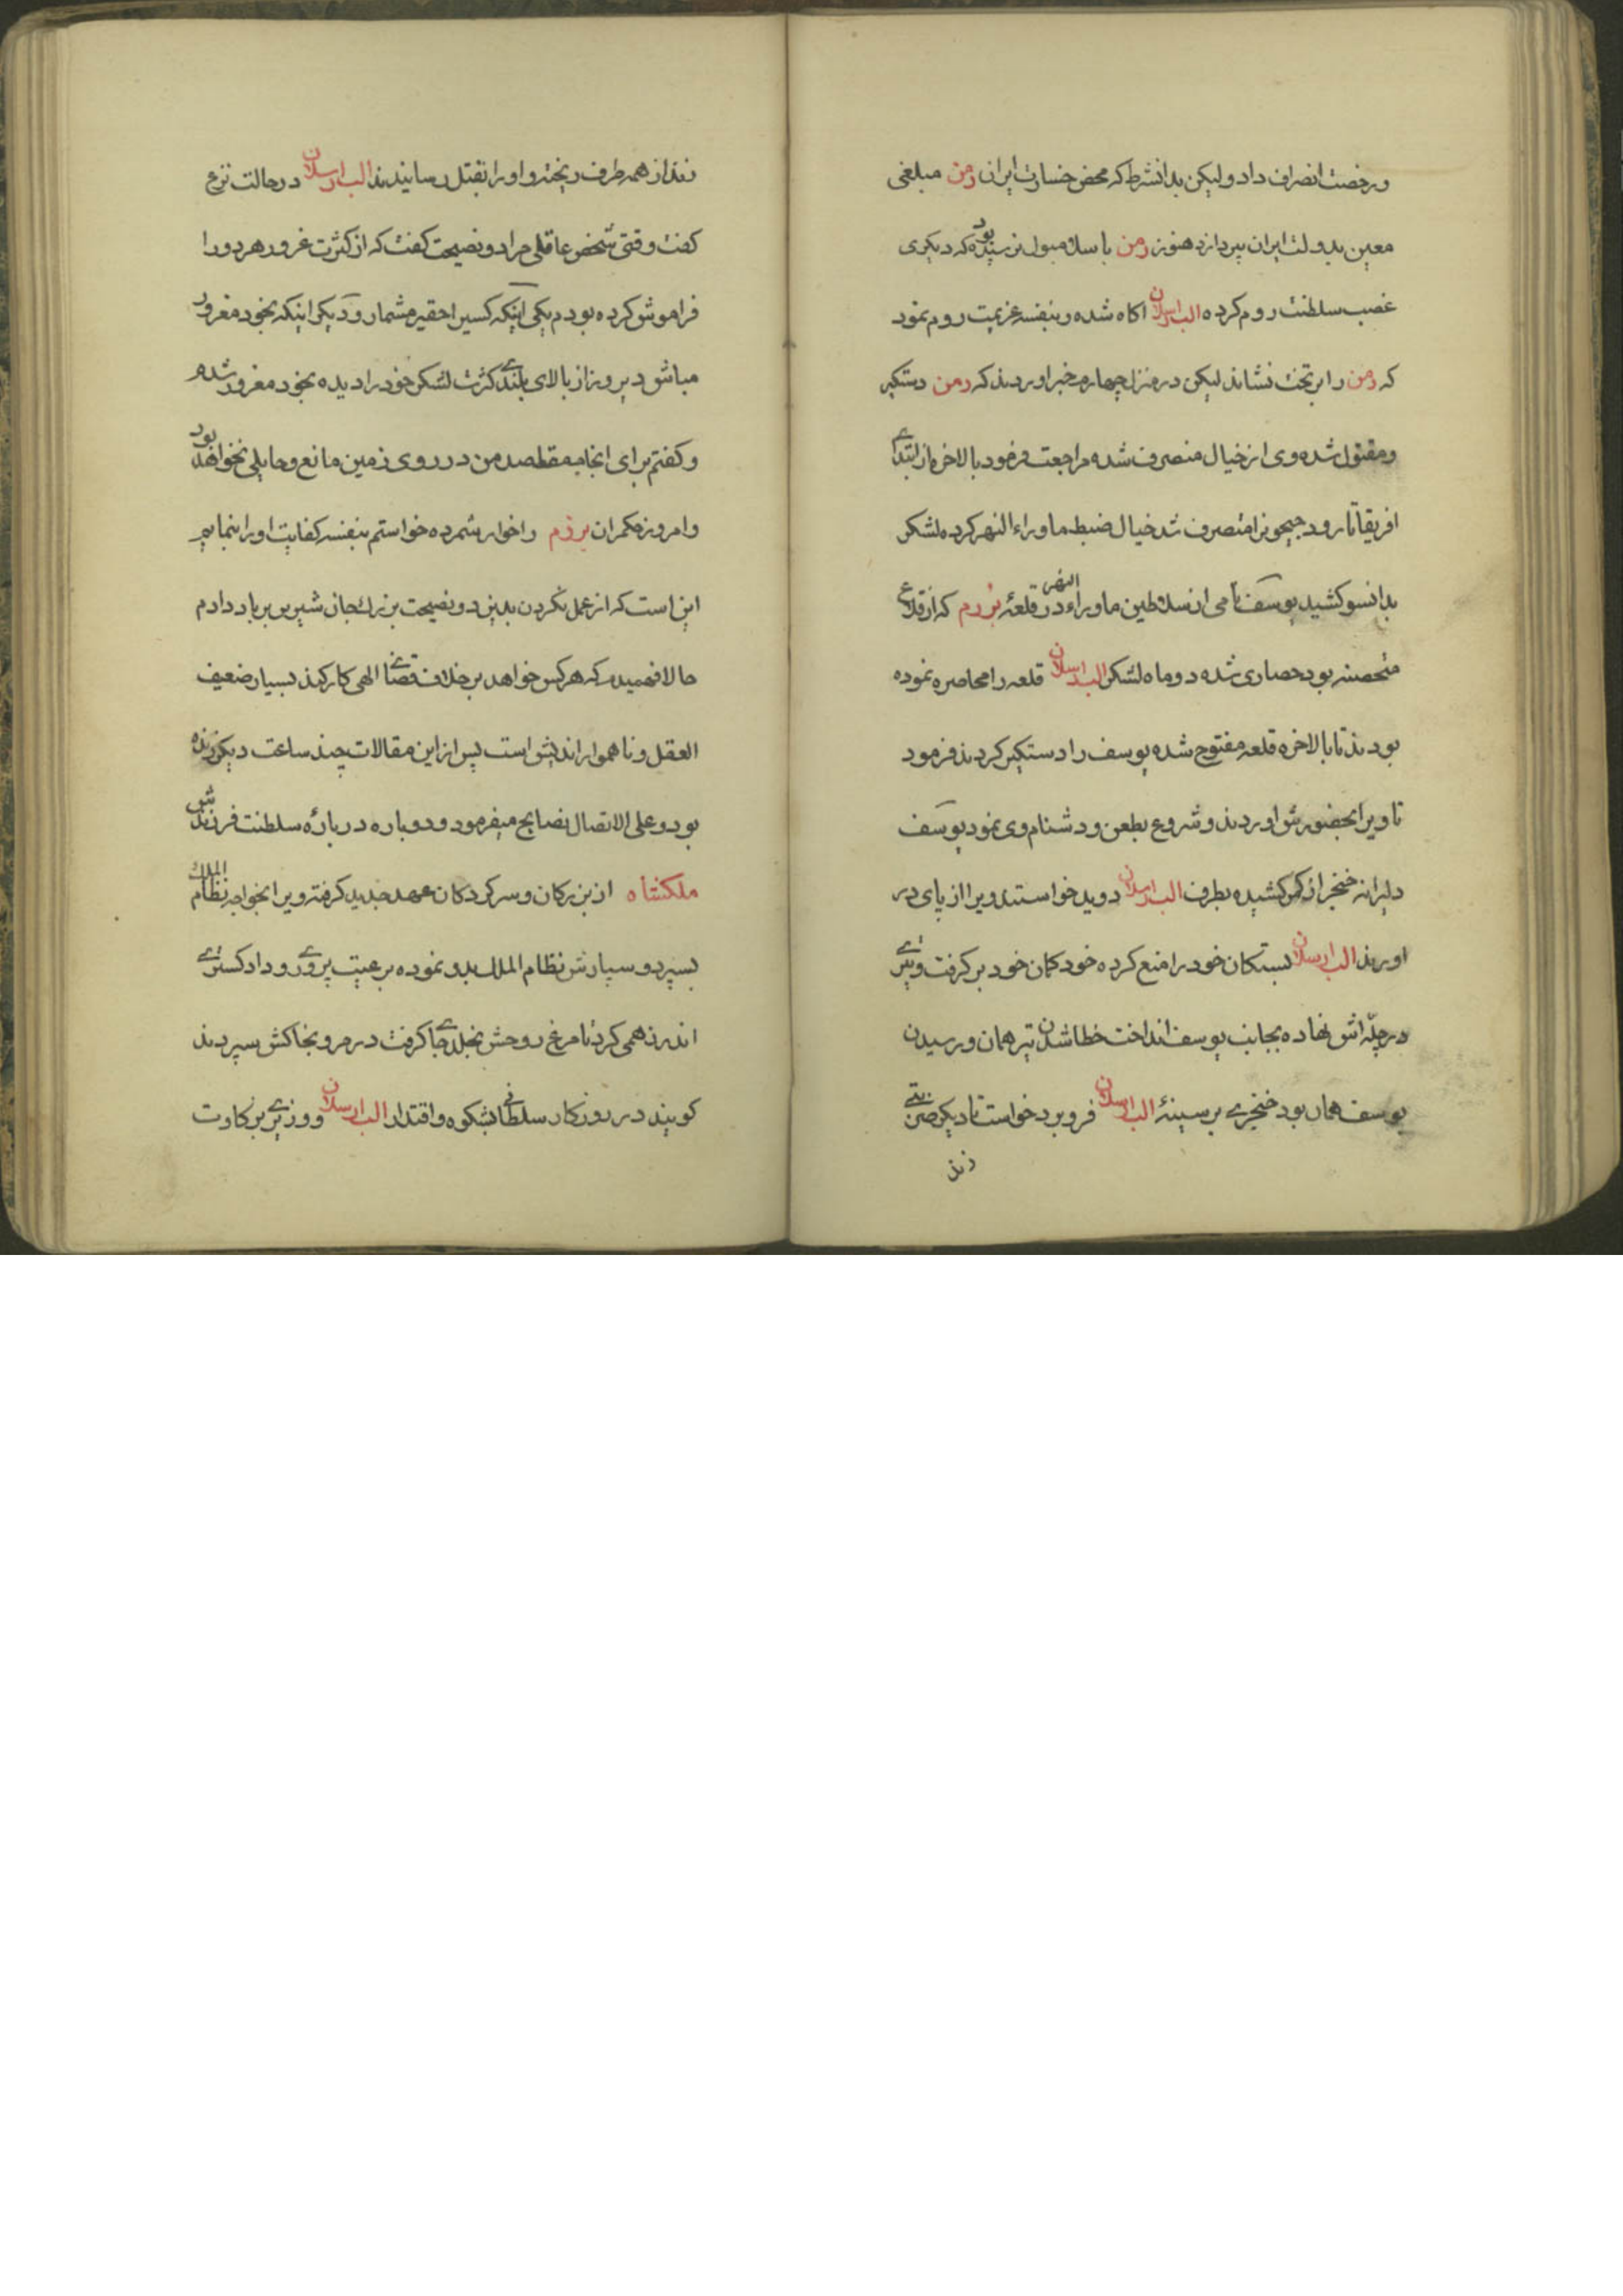 و رخصت انصراف داد و لیکن بدانشرط که محض خسارت ایران رمن مبلغی
معین بدولت ایران بپردازد هنوز رمن باسلامبول نرسیده بود که دیگری
غصب سلطنت روم کرده الب ارسلان اکاه شده بنفسه عزیمت روم نمود
که رمن را بر تخت نشاند لیکن در منزل چهارم خبر اوردند که رمن دستکیر
و مقتول شده وی از خیال منصرف شده مراجعت فرمود بالاخره از ابتدای
افریقا تا رود جیحونرا متصرف شد خیال ضبط ماوراء النهر کرد و لشکر
بدانسو کشید یوسف نامی از سلاطین ماوراء النهر در قلعهٔ برزم که از قلاع
متحصنه بود حصاری شده دو ماه لشکر الب ارسلان قلعه را محاصره نموده
بودند تا بالاخره قلعه مفتوح شده یوسف را دستکیر کردند فرمود
تا ویرا بحضورش اوردند و شروع بطعن و دشنام وی نمود یوسف
دلیرانه خنجر از کمر کشیده بطرف الب ارسلان دوید خواستند ویرا از پای در
اورند الب ارسلان بستکان خود را منع کرده خود کمان خود بر کرفت و تیری
در چلّه اش نهاده بجانب یوسف انداخت خطا شدن تیر همان و رسیدن
یوسف همان بود خنجری بر سینهٔ الب ارسلان فرو برد خواست تا دیکر ضربتی
زند
زند از همه طرف ریخته و او را بقتل رسانیدند الب ارسلان در حالت نزع
کفت وقتی شخص عاقلی مرا دو نصیحت کفت که از کثرت غرور هر دو را
فراموش کرده بودم یکی اینکه کسیرا حقیر مشمار و دیکر اینکه بخود مغرور
مباش دیروز از بالای بلندی کثرت لشکر خود را دیده بخود مغرور شدم
و کفتم برای انجام مقصد من در روی زمین مانع و حایلی نخواهد بود
و امروز حکمران برزم را خوار شمرده خواستم بنفسه کفایت او را بنمایم
این است که از عمل نکردن بدین دو نصیحت بزرک جان شیرین بر باد دادم
حالا فهمیدم که هر کس خواهد بر خلاف قضای الهی کار کند بسیار ضعیف
العقل و ناهموار اندیش است پس از این مقالات چند ساعت دیکر زنده
بود و علی الاتصال نصایح میفرمود و دوباره دربارهٔ سلطنت فرزندش
ملکشاه از بزرکان و سرکردکان عهد جدید کرفته ویرا بخواجه نظام الملک
بسپرد و سپارش نظام الملک بدو نموده برعیت پروری و داد کستری
اندرز همی کرد تا مرغ روحش بخلد جای کرفت در مرو بخاکش سپردند
کویند در روزکار سلطانی باشکوه و اقتدار الب ارسلان و وزیری بزرکاوت